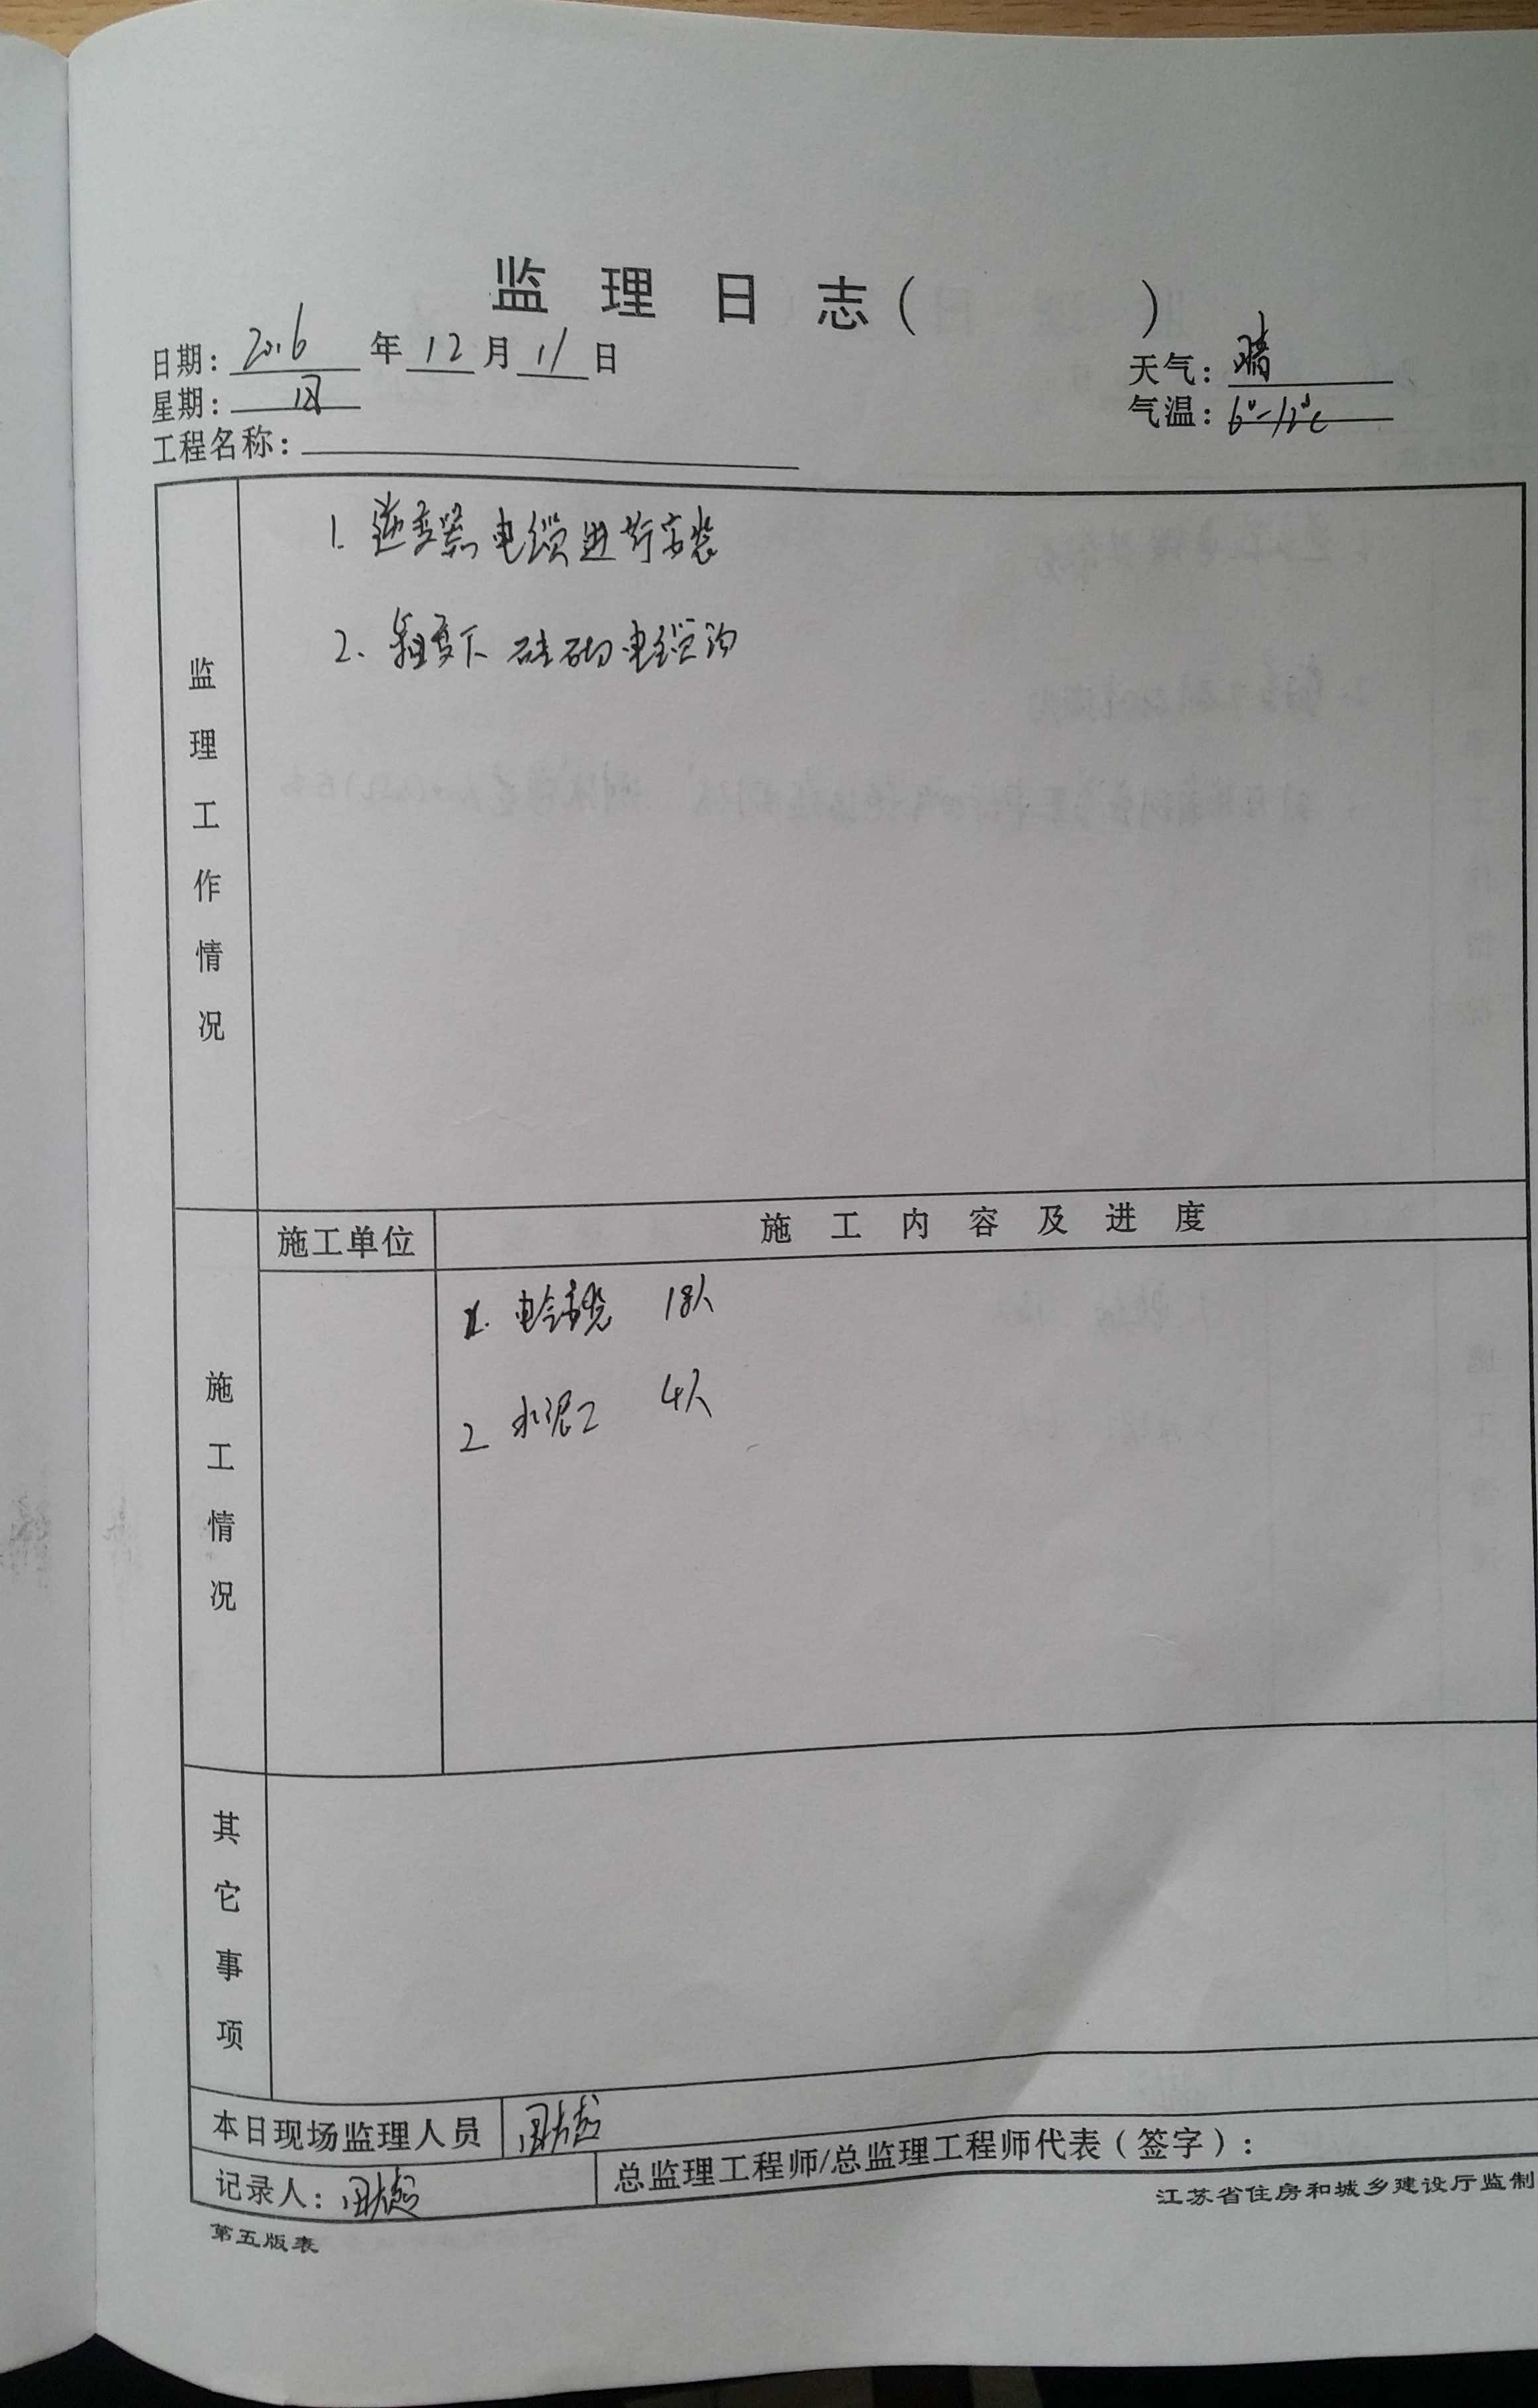 监理日志( )
日期: 2016 年 12 月 11 日
天气: 晴
星期: 日
气温: 6°-12℃
工程名称:
监理工作情况
1. 逆变器电缆进行安装
2. 箱变下 砌电缆沟
施工单位
施工内容及进度
施工情况
1. 电气安装 18人
2 水泥工 4人
其它事项
本日现场监理人员
记录人:
总监理工程师/总监理工程师代表(签字):
第五版表
江苏省住房和城乡建设厅监制